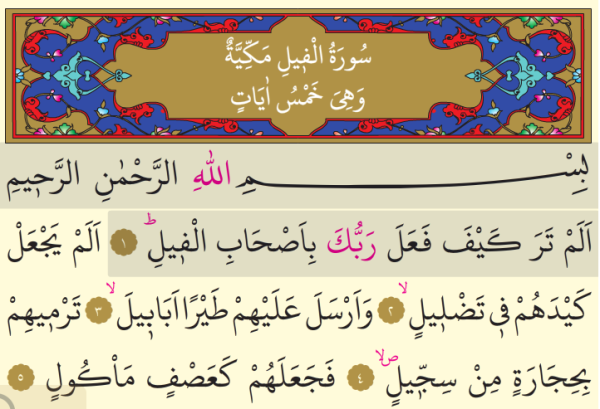 سُورَةُ الْفٖيلِ مَكِّيَّةٌ
وَهِىَ خَمْسُ اٰيَاتٍ
بِسْمِ اللّٰهِ الرَّحْمٰنِ الرَّحٖيمِ
اَلَمْ تَرَ كَيْفَ فَعَلَ رَبُّكَ بِاَصْحَابِ الْفٖيلِؕ ﴿١﴾ اَلَمْ يَجْعَلْ
كَيْدَهُمْ فٖى تَضْلٖيلٍۙ ﴿٢﴾ وَاَرْسَلَ عَلَيْهِمْ طَيْرًا اَبَابٖيلَۙ ﴿٣﴾ تَرْمٖيهِمْ
بِحِجَارَةٍ مِنْ سِجّٖيلٍۙࣗ ﴿٤﴾ فَجَعَلَهُمْ كَعَصْفٍ مَاْكُولٍ ﴿٥﴾